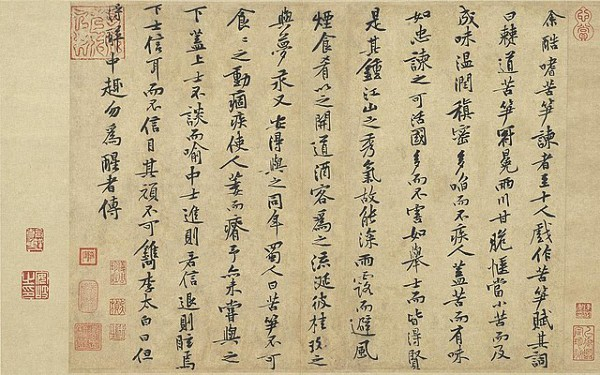 余酷嗜苦筍諫者至十人戲作苦筍賦其詞
曰僰道苦筍冠冕兩川甘脆愜當小苦而及
成味溫潤稹密多啗而不疾人蓋苦而有味
如忠諫之可活國多而不害如舉士而皆得賢
是其鍾江山之秀氣故能深雨露而避風
煙食肴以之開道酒客為之流涎彼桂玫之
與夢汞又安得與之同年蜀人曰苦筍不可
食〻之動痼疾使人萎而瘠予亦未嘗與之
下蓋上士不談而喻中士進則若信退則眩焉
下士信耳而不信目其頑不可鐫李太白曰但
得醉中趣勿為醒者傳